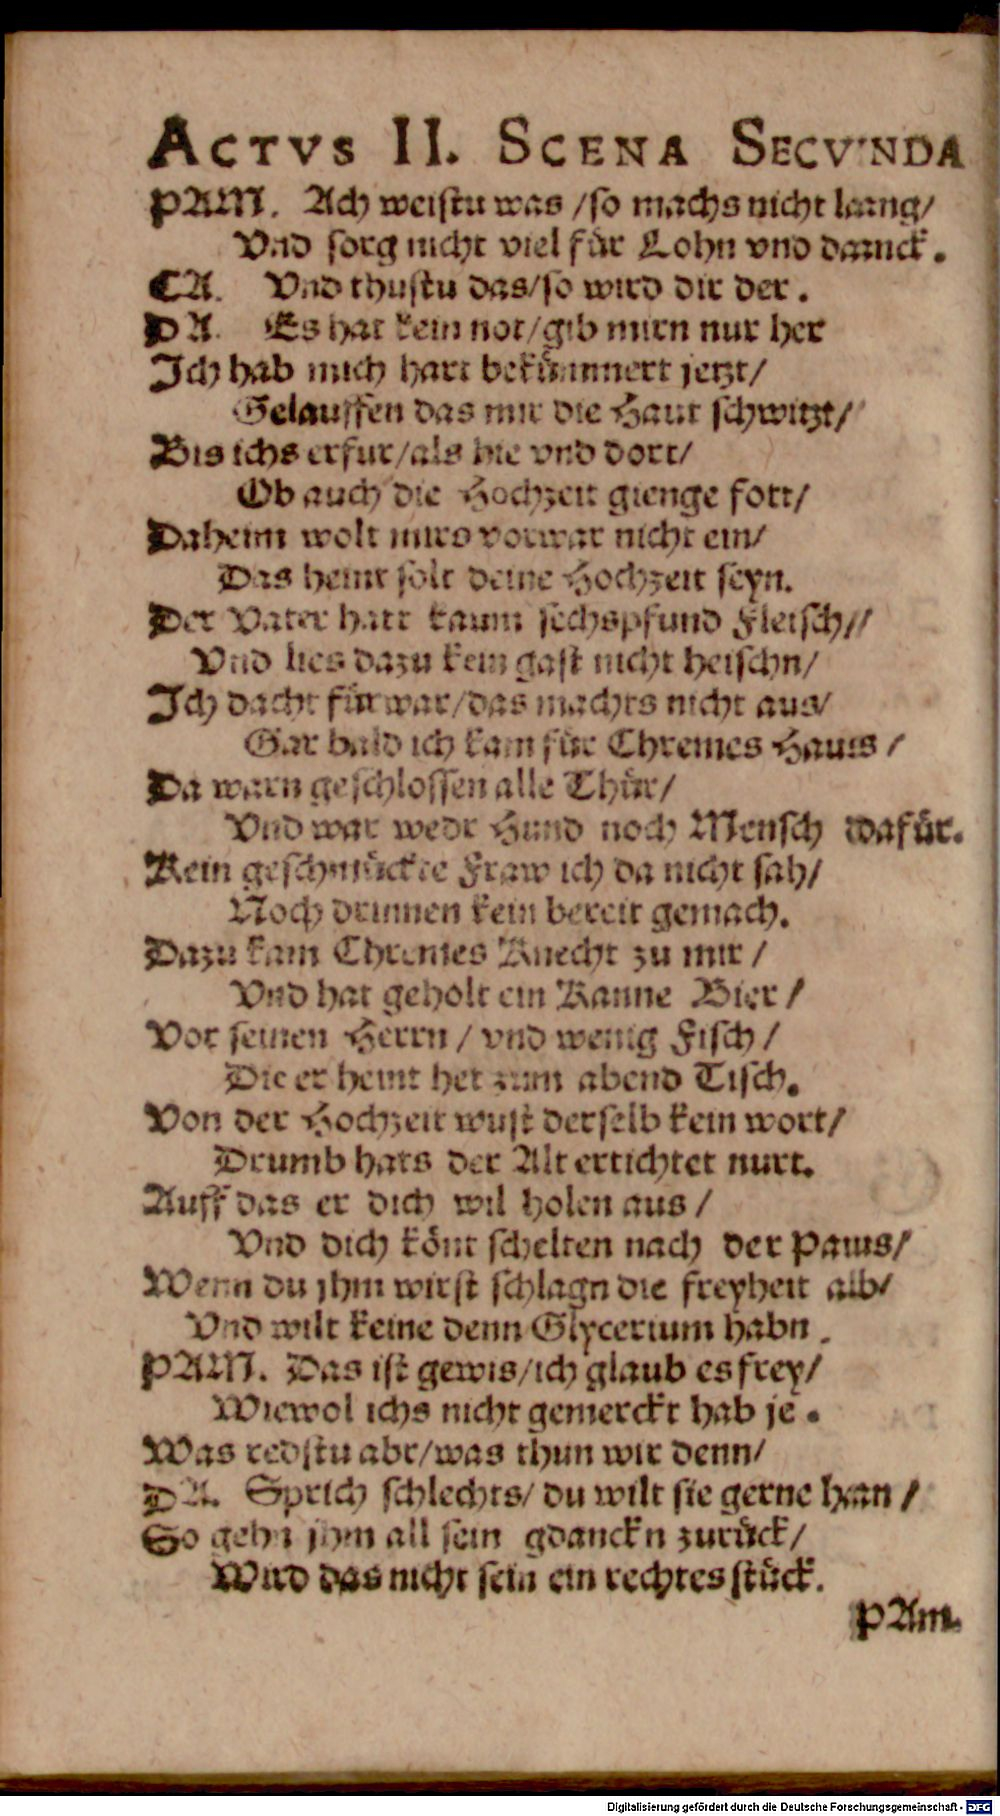 ACTVS II. SCENA SECVNDA
PAM. Ach weistu was /so machs nicht lanng/
Vnd sorg nicht viel für Lohn vnd danck.
CA. Vnd thustu das/so wird dir der.
DA. Es hat kein not/gib mirn nur her
Ich hab mich hart bekümmert jetzt/
Gelauffen das mir die Haut schwitzt/
Bis ichs erfur/als hie vnd dort/
Ob auch die Hochzeit gienge fort/
Daheim wolt mirs vorwar nicht ein/
Das heint solt deine Hochzeit seyn.
Der Vater hatt kaum sechspfund Fleisch//
Vnd lies dazu kein gast nicht heischn/
Ich dacht fürwar/das machts nicht aus/
Gar bald ich kam für Chremes Hauss /
Da warn geschlossen alle Thür/
Vnd war wedr Hund noch Mensch dafür.
Kein geschmückte Fraw ich da nicht sah/
Noch drinnen kein bereit gemach.
Dazu kam Chremes Knecht zu mir /
Vnd hat geholt ein Kanne Bier /
Vor seinen Herrn / vnd wenig Fisch /
Die er heint het zum abend Tisch.
Von der Hochzeit wust derselb kein wort/
Drumb hats der Alt ertichtet nurt.
Auff das er dich wil holen aus /
Vnd dich könt schelten nach der Paus/
Wenn du jhm wirst schlagn die freyheit alb/
Vnd wilt keine denn Glycerium habn.
PAM. Das ist gewis/ich glaub es frey/
Wiewol ichs nicht gemerckt hab je.
Was redstu abr/was thun wir denn/
DA. Sprich schlechts/ du wilt sie gerne han /
So gehn jhm all sein gdanckn zurück/
Wird das nicht sein ein rechtes stück.
PAm.
Digitalisierung gefördert durch die Deutsche Forschungsgemeinschaft - DFG